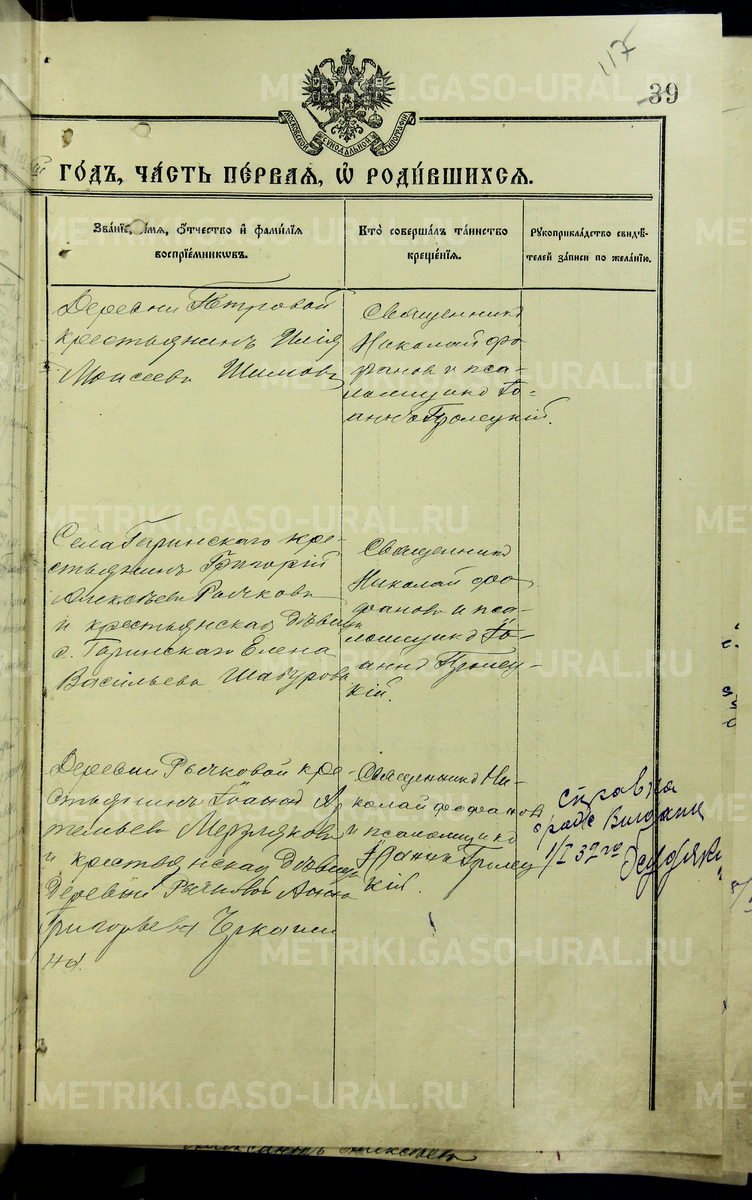 117
39
МОСКОВСКОЙ СѴНОДАЛЬНОЙ ТИПОГРАФІИ
ГО́ДЪ, ЧА́СТЬ ПЕ́РВАЯ, Ѽ РОДИ́ВШИХСЯ.
Зва́ніе, и́мя, о́тчество и҆ фами́лія
воспріе́мниковъ.
Кто̀ соверша́лъ та́инство
креще́нія.
Рукоприкла́дство свидѣ́-
телей за́писи по жела́нію.
Деревни Петровой
крестьянинъ Илія
Моисеевъ Шимовъ
Священникъ
Николай Фо
фановъ и пса-
ломщикъ Іо-
аннъ Грилецкій.
Села Гаринскаго кре-
стьянинъ Григорій
Алексѣевъ Рычковъ
и крестьянская дѣвица
с. Гаринскаго Елена
Васильева Шабурова
Священникъ
Николай Фо
фановъ и пса-
ломщикъ Іо-
аннъ Грилец-
кій.
Деревни Рычковой кре-
стьянинъ Іоаннъ
Мерзляковъ
и крестьянская дѣвица
Деревни Рычковой Анна
Григорьева
на.
Священникъ Ни-
колай Фофановъ
и псаломщикъ
Іоаннъ Грилец
кій.
справка
о выдана
1/I 32 го
METRIKI.GASO-URAL.RU